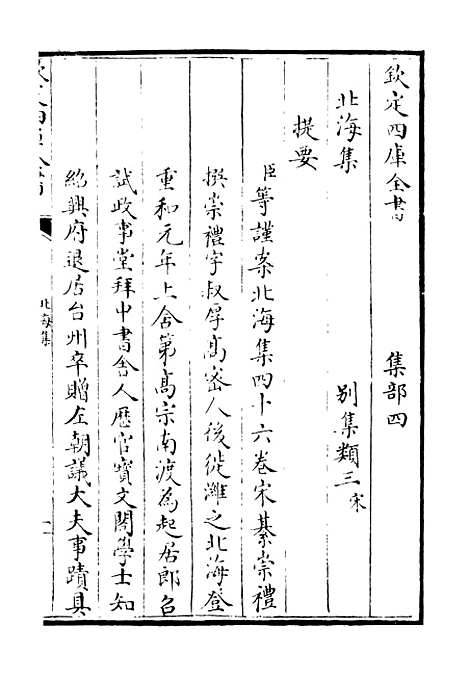 欽定四庫全書　集部四
北海集　別集類三 宋
提要
臣等謹案北海集四十六卷宋綦崇禮
撰崇禮字叔厚髙宻人後徙濰之北海登
重和元年上舍第髙宗南渡為起居郎召
試政事堂拜中書舍人歴官寳文閣學士知
紹興府退居台州卒贈左朝議大夫事蹟具
北海集